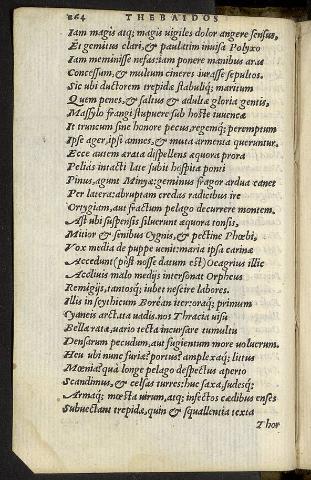 264 THEBAIDOS
Iam magis atq; magis uigiles dolor angere sensus,
Et gemitus clari, & paulatim inuisa Polyxo
Iam meminisse nefas: iam ponere manibus aras
Concessum, & multum cineres iurasse sepultos.
Sic ubi ductorem trepidæ stabuliq; maritum
Quem penes, & saltus & adultæ gloria gentis,
Massylo frangi stupuere sub hoste iuuencæ
It truncum sine honore pecus, regemq; peremptum
Ipse ager, ipsi amnes, & muta armenta queruntur.
Ecce autem ærata dispellens æquora prora
Peliàs intacti late subit hospita ponti
Pinus, agunt Minyæ: geminus fragor ardua canet
Per latera: abruptam credas radicibus ire
Ortygiam, aut fractum pelago decurrere montem.
Ast ubi suspensis siluerunt æquora tonsis,
Mitior & senibus Cygnis, & pectine Phœbi,
Vox media de puppe uenit: maria ipsa carinæ
Accedunt (pòst nosse datum est) Oeagrius illic
Accliuis malo medijs intersonat Orpheus
Remigijs, tantosq; iubet nescire labores.
Illis in scythicum Borean iter: oraq; primum
Cyaneis arctata uadis. nos Thracia uisu
Bella rata, uario tecta incursare tumultu
Densarum pecudum, aut fugientum more uolucrum.
Heu ubi nunc furiæ? portus? amplexaq; litus
Mœnia? quà longe pelago despectus aperto
Scandimus, & celsas turres: huc saxa, sudesq;
Armaq; mœsta uirum, atq; infectos cædibus enses
Subuectant trepidæ, quin & squallentia texta
Thor